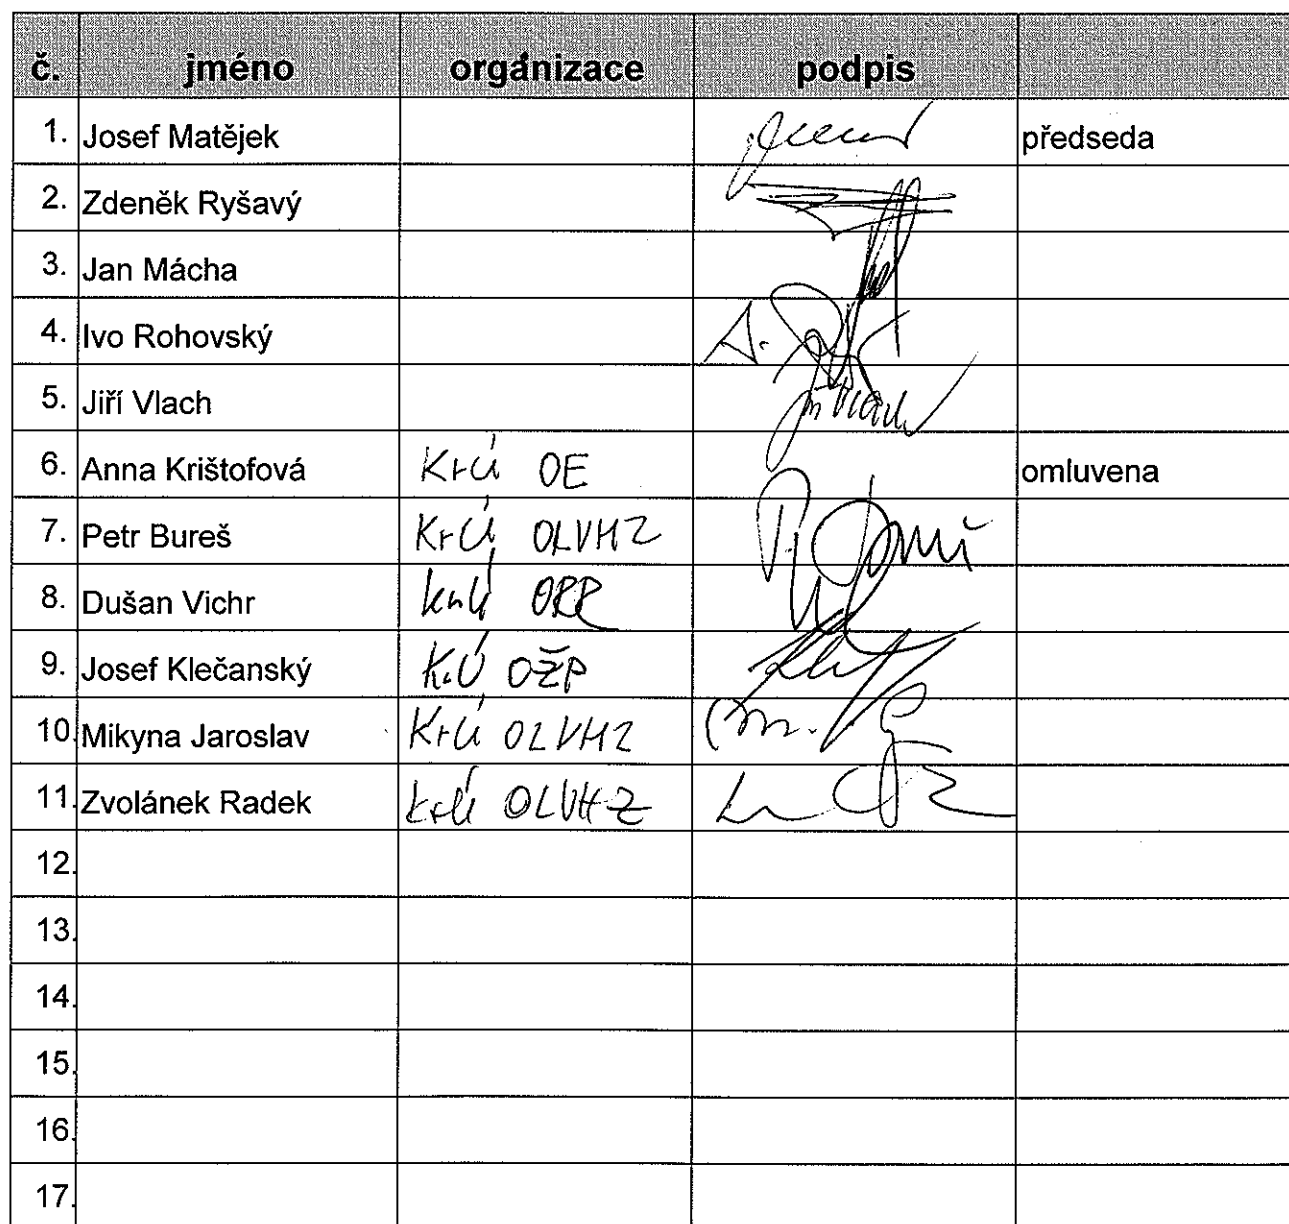 č. jméno organizace podpis
1. Josef Matějek předseda
2. Zdeněk Ryšavý
3. Jan Mácha
4. Ivo Rohovský
5. Jiří Vlach
6. Anna Krištofová KrÚ OE omluvena
7. Petr Bureš KrÚ OLVHZ
8. Dušan Vichr KrÚ ORR
9. Josef Klečanský KrÚ OŽP
10. Mikyna Jaroslav KrÚ OLVHZ
11. Zvolánek Radek KrÚ OLVHZ
12.
13.
14.
15.
16.
17.